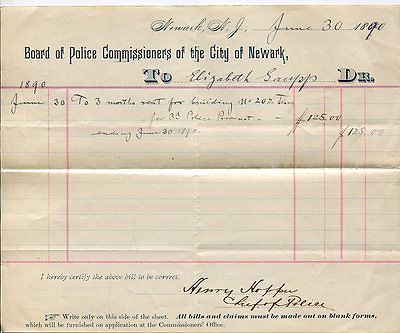 Newark, N. J., June 30 1890
Board of Police Commissioners of the City of Newark,
To Elizabeth Gaupp Dr.
1890
June 30 To 3 months rent for building No 207
for 3d Police Precinct. $125.00
ending June 30 - 1890 $125.00
I hereby certify the above bill to be correct.
Henry Hopper
Chief of Police
☞ Write only on this side of the sheet. All bills and claims must be made out on blank forms,
which will be furnished on application at the Commissioners' Office.